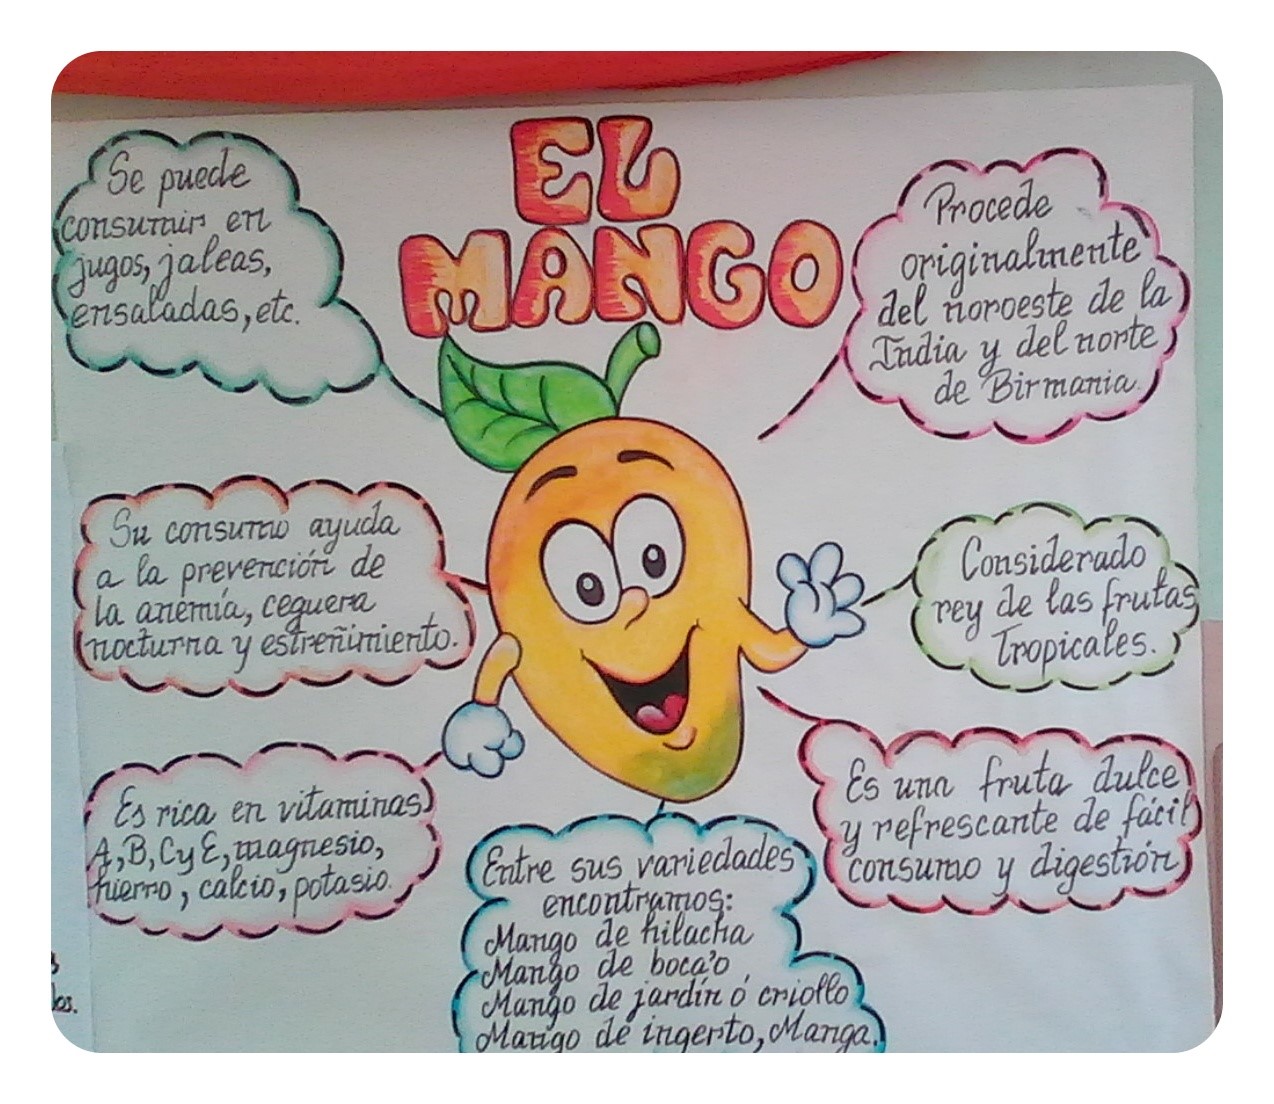 EL
MANGO
Se puede
consumir en
jugos, jaleas,
ensaladas, etc.
Procede
originalmente
del noroeste de la
India y del norte
de Birmania.
Su consumo ayuda
a la prevención de
la anemia, ceguera
nocturna y estreñimiento.
Considerado
rey de las frutas
Tropicales.
Es rica en vitaminas
A, B, C y E, magnesio,
hierro, calcio, potasio.
Es una fruta dulce
y refrescante de fácil
consumo y digestión
Entre sus variedades
encontramos:
Mango de hilacha
Mango de boca'o
Mango de jardín ó criollo
Mango de ingerto, Manga.